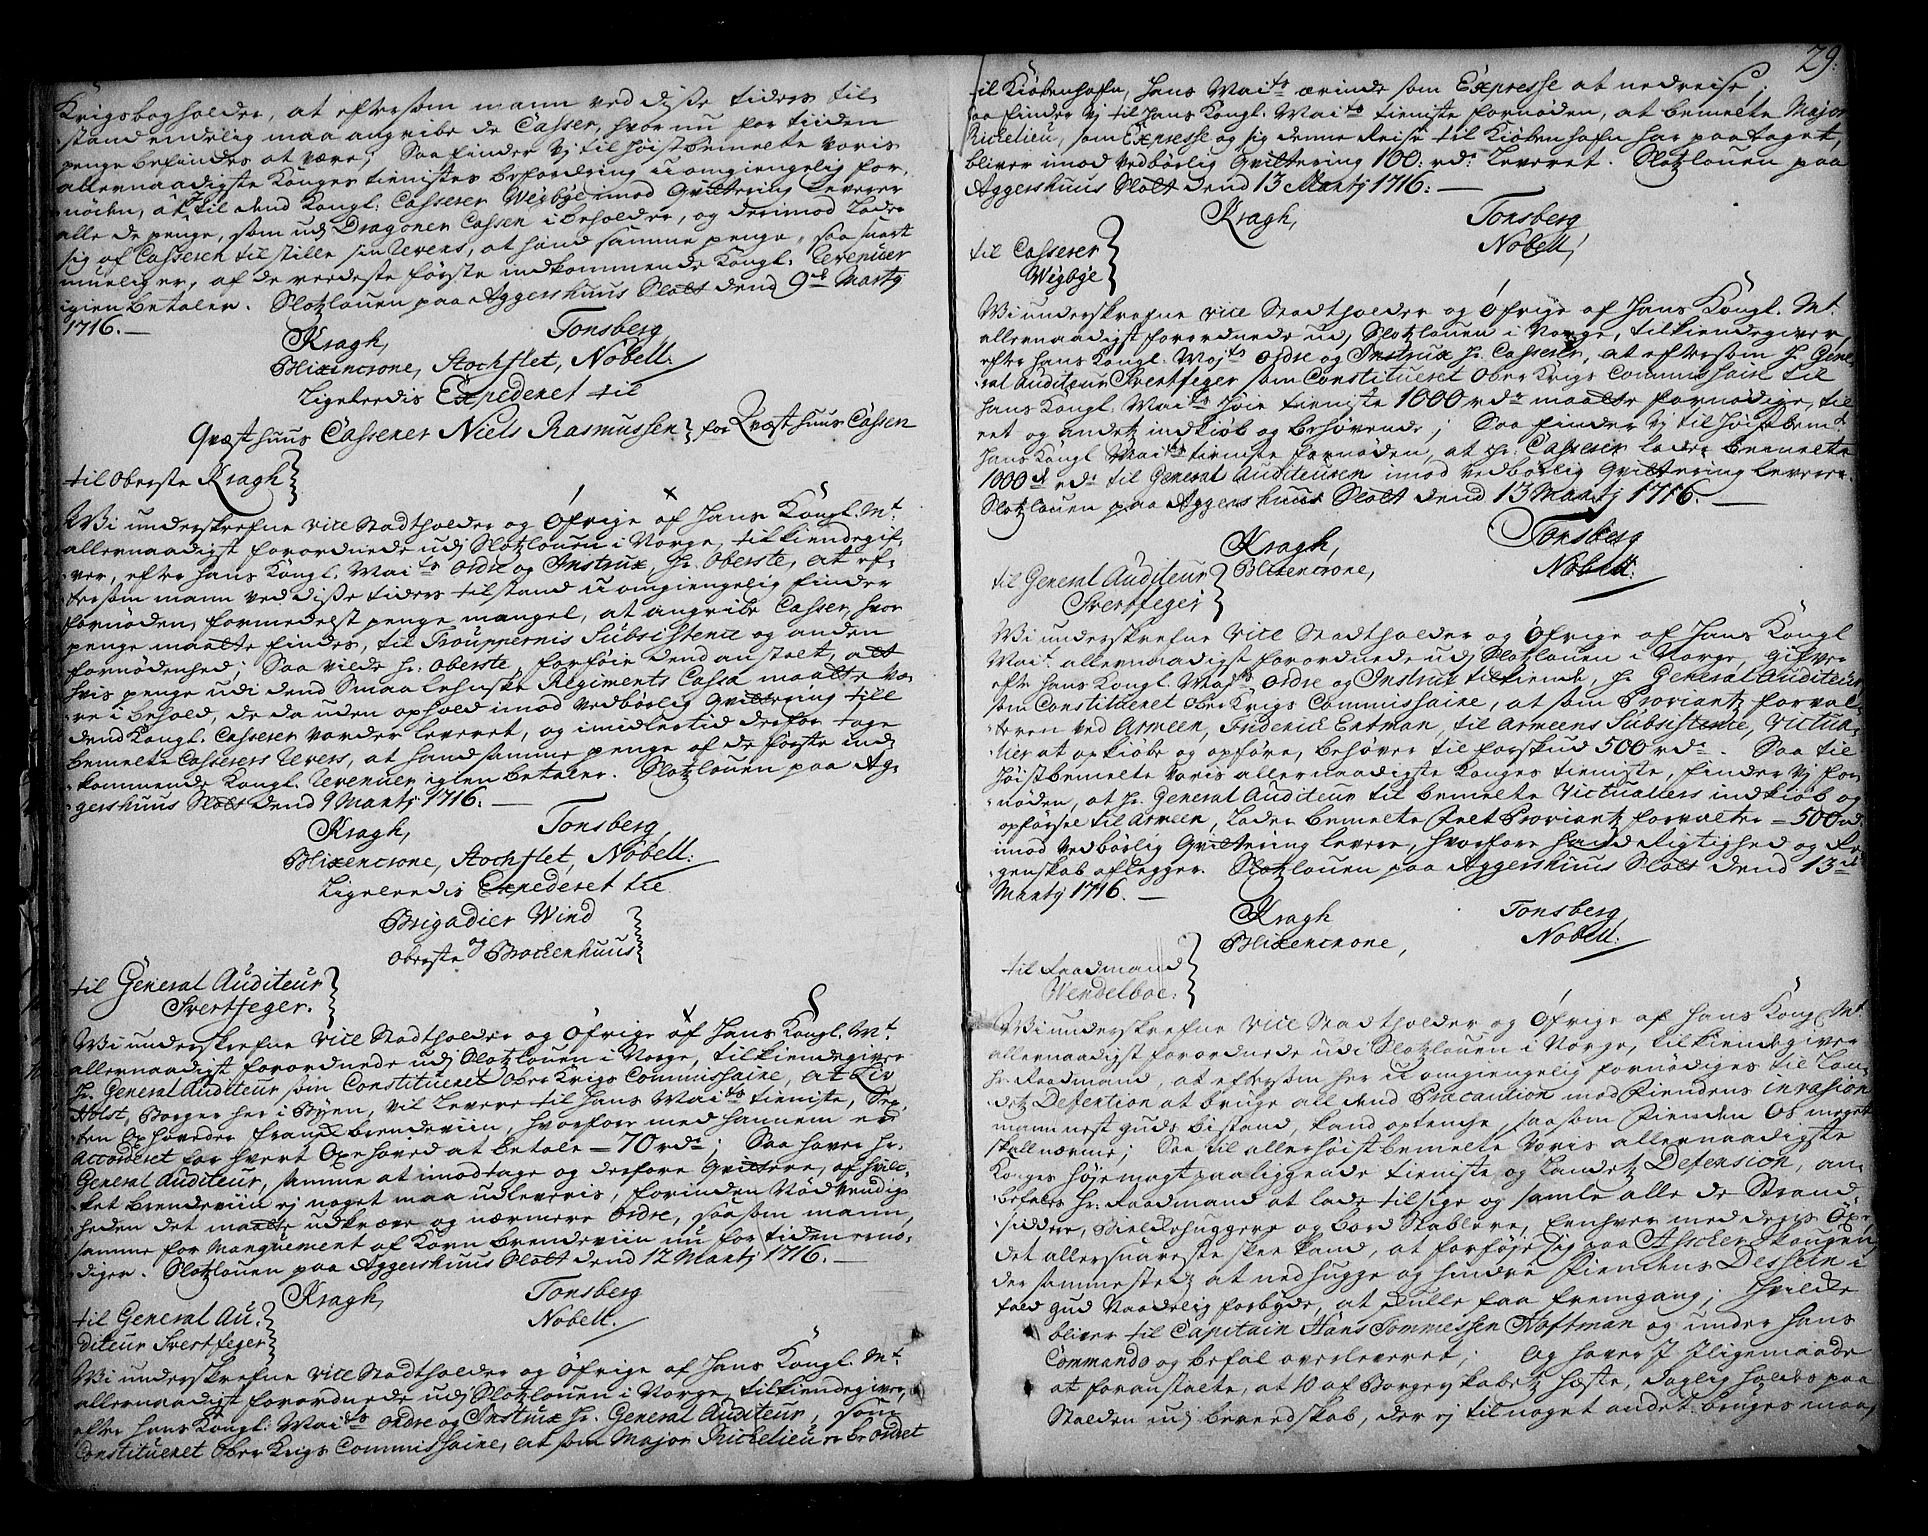 Krigsbogholder, at eftersom mann ved disse tiders til-
stand endelig maa angribe de Casser, hvor nu for tiiden
penge befindes at være; Saa finder vj til høistbemelte voris
allernaadigste Konges tienistes befordring uomgiengelig for-
nøden, at til dend Kongl: Casserer Wigbye mod Qvittering leverer
alle de penge, som udj Dragoner Cassen i beholder, og derimod lader
sig af Casseren tilstille sin Revers, at hand samme penge, saa snart
mueligt er, af de reedeste første indkommende Kongl. Revenuer
igien betaler. Slotzlouen paa Aggershuus Slott dend 9de Martij
1716.
Kragh, Tonsberg,
Blixencrone, Stochflet, Nobell.
Ligeleedis Expederet til
Qvæsthuus Casserer Niels Rasmussen for Qvæsthuus Cassen
til Oberste Kragh
Wi underskrefne vice Stadtholder og Øfrige af Hans Kongl. Mt.
allernaadigst forordnede udj Slotzlouen i Norge, tilkiendegif-
ver, efter Hans Kongl. Maits ordre og Instrux, Hr. Oberste, at ef-
tersom mann ved disse tiders tilstand uomgiengelig finder
fornøden, formedelst penge mangel, at angribe Casser, hvor
penge maatte findes, til Trouppernis Subsistence og anden
fornødenhed; Saa vilde Hr. Oberste, forføie dend anstalt, att
hvis penge udi dend Smaalehnske Regiments Cassa maatte væ-
re i behold, de da uden ophold imod vedbørlig Qvittering till
dend Kongl. Casserer vorder leveret, og imidlertid derfor tage
bemelte Casserers Revers, at hand samme penge af de første ind-
kommende Kongl. Revenuer igien betaler. Slotzlouen paa Ag-
gershuus Slott dend 9 Martj 1716.
Kragh, Tonsberg,
Blixencrone, Stochflet, Nobell.
Ligeleedis Expederet til
Brigadier Wind
og
Oberste Brockenhuus
til General Auditeur
Svertfeger.
Wi underskrefne vice Stadtholder og Øfrige af Hans Kongl. Mt.
allernaadigst forordnede udj Slotzlouen i Norge, tilkiendegiver
Hr. General Auditeur som Constitueret Ober Krigs Commissaire, at
Holst, Borger her i Byen, vil levere til Hans Maits tieniste,
ten Oxhoveder Fransk brendeviin, hvorfore med hannem er
Accorderet for hvert Oxehoved at betale - 70 rdr; Saa haver Hr.
General Auditeur, samme at imodtage og derfore Qvittere, af hvil-
ket brendeviin ej noget maa udleveris, forinden Nødvendig-
heden det maatte udkræve og nærmere Ordre, saasom mann,
samme for Manquement af Korn brendeviin nu for tiden er nø-
diger. Slotzlouen paa Aggershuus Slott dend 12 Martj 1716.
Kragh, Tonsberg
Nobell.
til General Au-
diteur Svertfeger
Wi underskrefne vice Stadtholder og Øfrige af Hans Kongl. Mt.
allernaadigst forordnede udj Slotzlouen i Norge, tilkiendegiver,
efter Hans Kongl. Maits Ordre og Instrux Hr. General Auditeur, som
Constitueret Ober Krigs Commissaire, at som Major Rickelieu er beordret
29.
til Kiøbenhafn, Hans Maits ærinde som Expresse at nedreise,
saa finder vj til Hans Kongl. Maits tieniste fornøden, at bemelte Major
Rickelieu, som Expresse og sig denne Reise til Kiøbenhafn har paataget,
bliver imod vedbørlig Qvittering 100: rdr. leveret. Slotzlouen paa
Aggershuus Slott dend 13 Martj 1716.
Kragh, Tonsberg
Nobell,
til Casserer
Wigbye
Wi underskrefne vice Stadtholder og Øfrige af Hans Kongl. Mt.
allernaadigst forordnede udj Slotzlouen i Norge, tilkiendegiver,
efter Hans Kongl. Maits Ordre og Instrux Hr. Casserer, at eftersom Hr. Gene-
ral Auditeur Svertfeger som Constitueret Ober Krigs Commissaire til
Hans Kongl. Maits Høie tieniste 1000 rdr maatte fornødige, til
et og andetz indkiøb og behøvende; Saa finder vj til Høistbemte
Hans Kongl Maits tieniste fornøden, at Hr. Casserer lader bemelte
1000 rdr til General Auditeuren imod vedbørlig Qvittering levere.
Slotzlouen paa Aggershuus Slott dend 13 Martj 1716.
Kragh, Tonsberg
Blixencrone, Nobell.
til General Auditeur
Svertfeger
Wi underskrefne vice Stadtholder og Øfrige af Hans Kongl
Mait. allernaadigst forordnede udj Slotzlouen i Norge, gifver
efter Hans Kongl. Maits Ordre og Instrux tilkiende, Hr General Auditeur
som Constitueret Ober Krigs Commissaire, at som Proviantz forval-
teren ved Armeen, Friderick Entman, til Armeens Subsistence, Victua-
lier at opkiøbe og opføre, behøver til forskud 500 rdr. Saa til
Høistbemelte voris allernaadigste Konges tieniste, finder vj for-
nøden, at Hr. General Auditeur til bemelte Victualiers indkiøb og
opførsel til Armeen, lader bemelte Felt Proviantz forvalter - 500 rd.
imod vedbørlig Qvittering levere, hvorfore hand Rigtighed og Re-
genskab aflegger. Slotzlouen paa Aggershuus Slott dend 13de
Martj 1716.
Kragh Tonsberg,
Blixencrone, Nobell.
til Raadmand
Wendelboe.
Wi underskrefne vice Stadtholder og Øfrige af Hans Kongl Mt.
allernaadigst forordnede udi Slotzlouen i Norge, tilkiendegiver
Hr. Raadmand, at eftersom her uomgiengelig fornødiges til Lan-
detz Defention at bruge all dend Præcaution mod Fiendens invasion
mann nest guds bistand, kand optenche, saasom Fienden os meget
skall nærme; Saa til allerhøistbemelte voris allernaadigste
Konges høje magtpaaliggende tieniste og Landetz Defension, an-
befales Hr. Raadmand at lade tilsige og samle alle de Strand-
siddere, Bielkehuggere og bord Stablere, Eenhver med deris Øxe
det allersnareste skee kand, at forføje sig paa Asscher skougen,
der sammestedz at nedhugge og hindre Fiendens Dessein i
fald gud Naadelig forbyde, at skulle faa fremgang; Hvilde
bliver til Capitain Hans Tommessen Noftman og under Hans
Commando og befal overleveret; Og haver I Iligemaade
at foranstalte, at 10 af Borgerskabetz Heste, daglig holdes paa
Stalden udj beredskab, der ej til noget andet bruges maa,